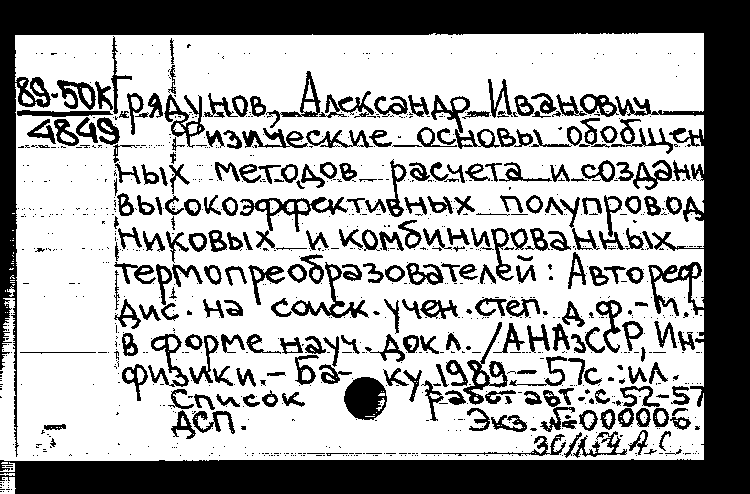 89-50К Грядунов, Александр Иванович
4849 Физические основы обобщен
ных методов расчета и создани
высокоэффективных полупровод
никовых и комбинированных
термопреобразователей: Автореф
дис. на соиск. учен. степ. д.ф.-м.н
в форме науч. докл. /АНАзССР, Ин-
физики.- Ба- ку, 1989.- 57с.:ил.
Список работ авт.: с. 52-57
ДСП. Экз. №000006.
А.С.